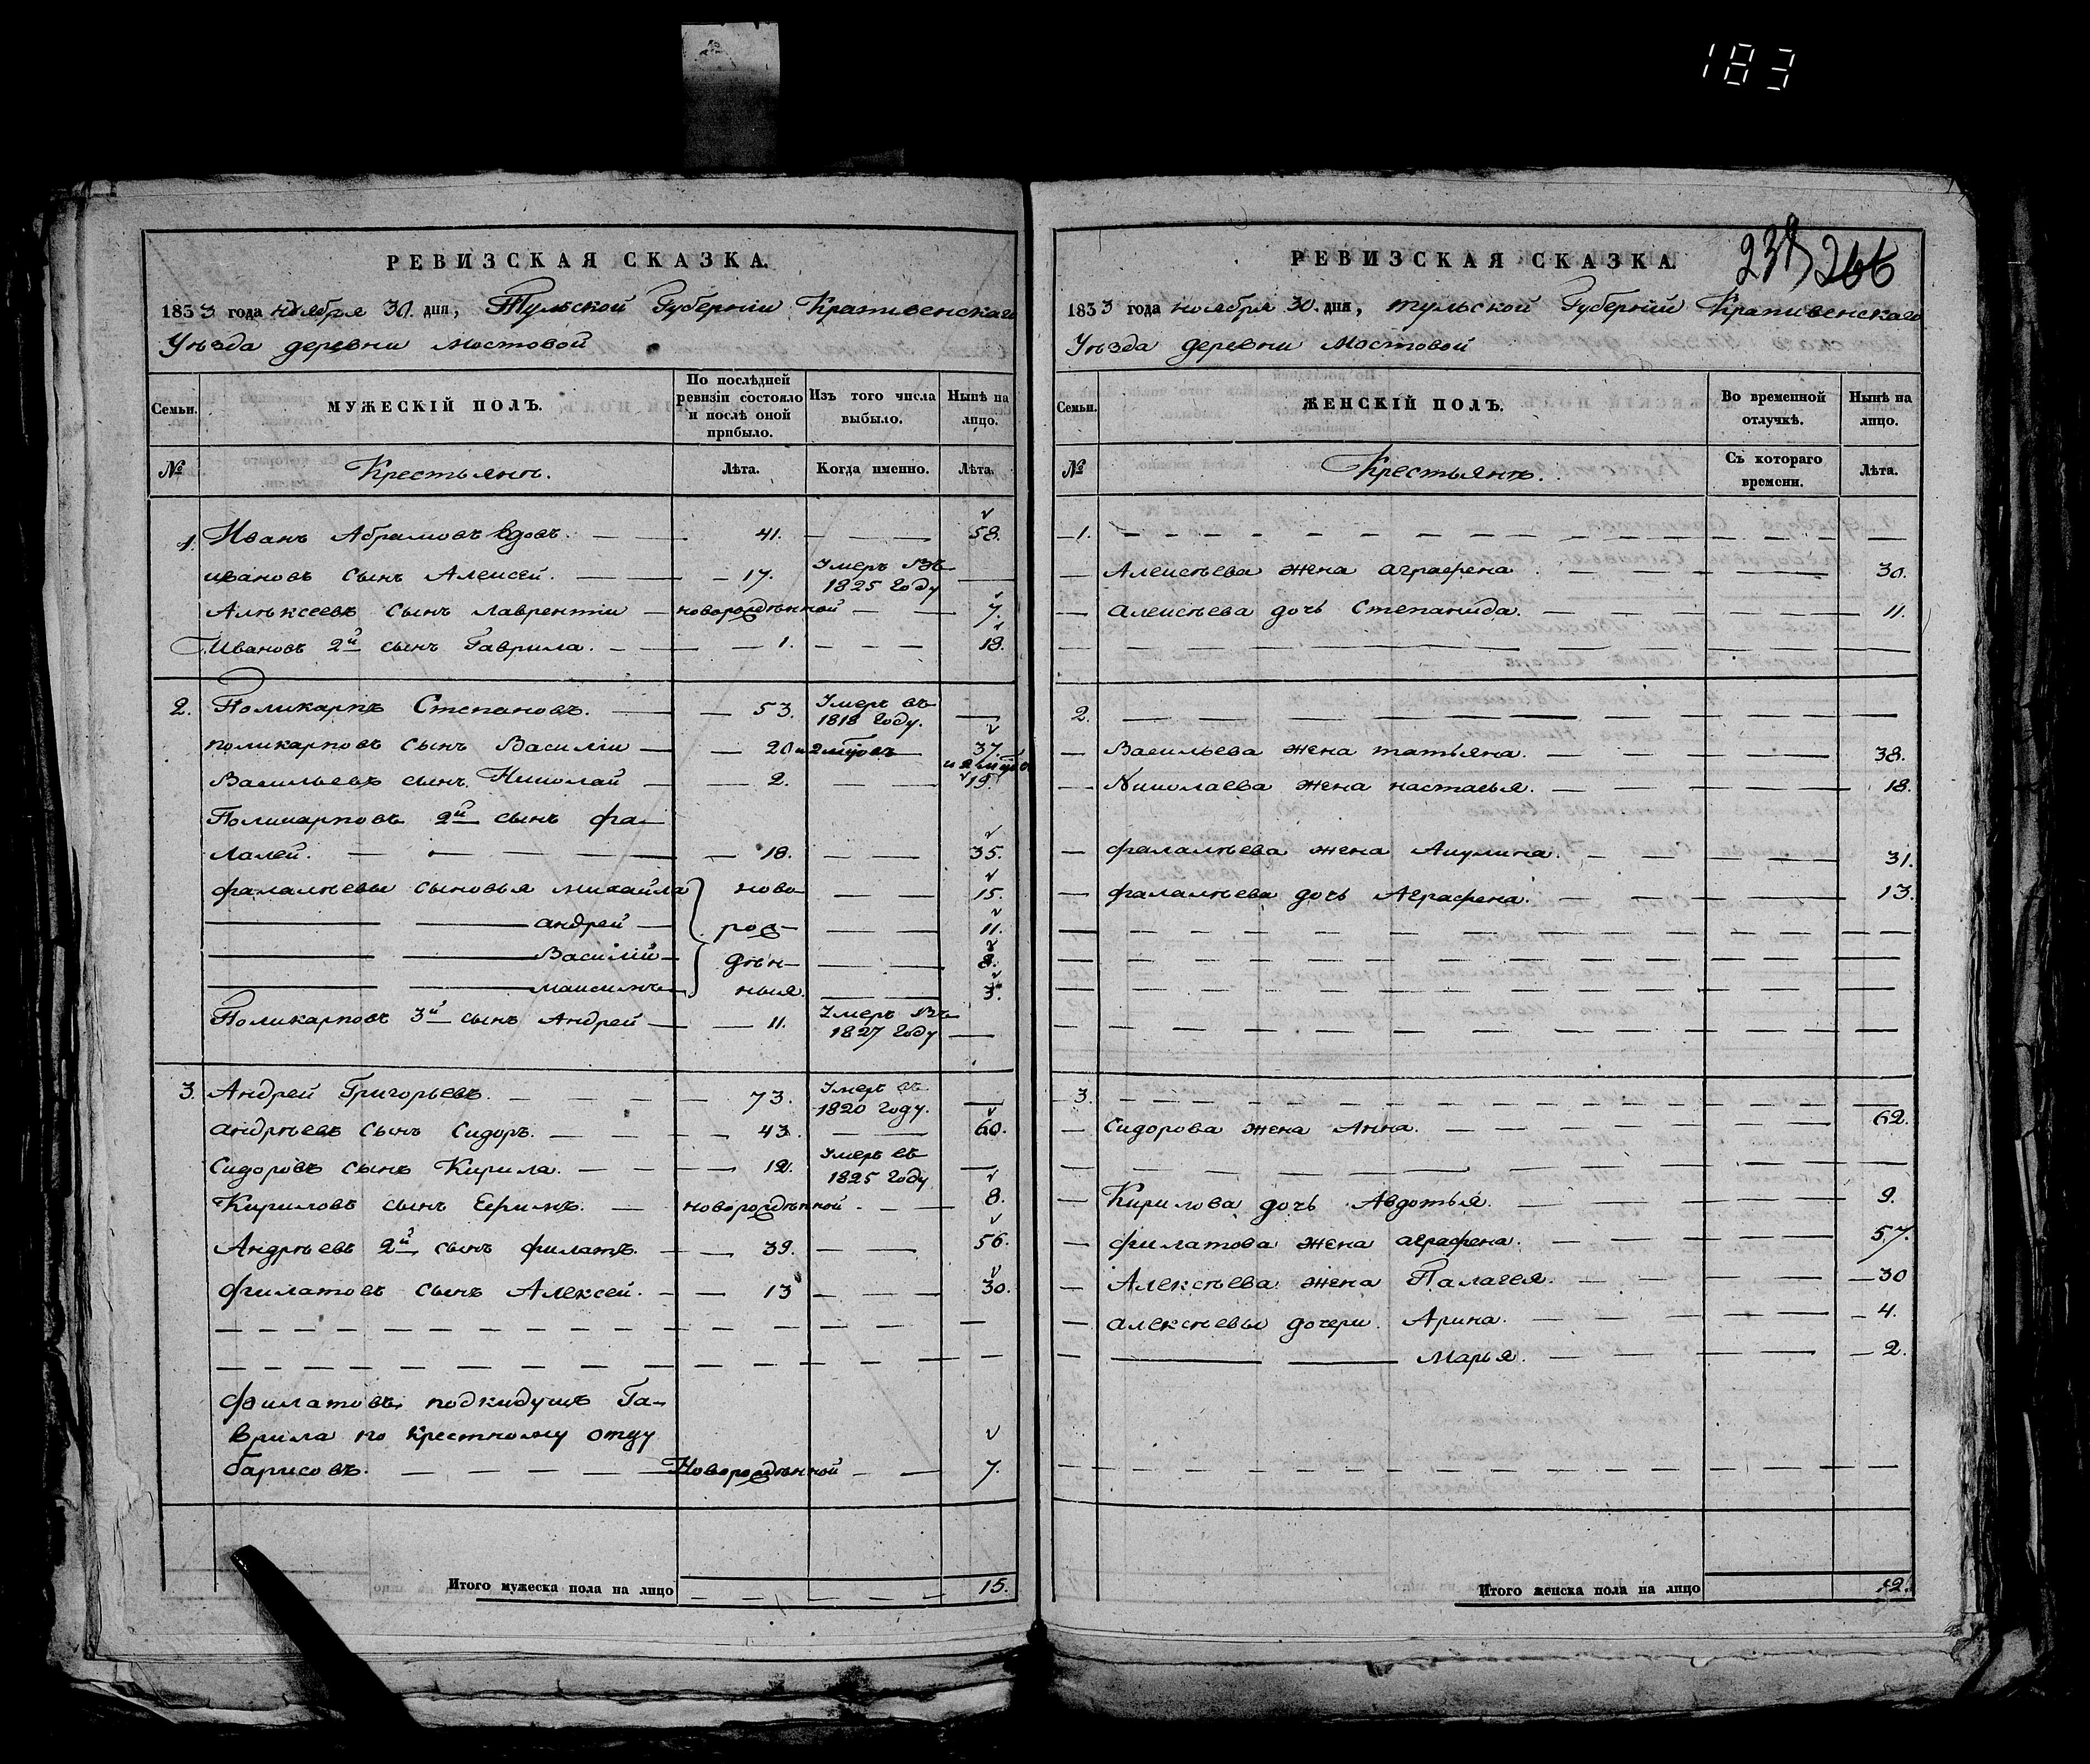 183
РЕВИЗСКАЯ СКАЗКА.
1833 года ноября 30. дня, Тульской Губерніи Крапивенскаго
Уѣзда деревни Мостовой
Семьи.
МУЖЕСКІЙ ПОЛЪ.
По послѣдней ревизіи состояло и послѣ оной прибыло.
Изъ того числа выбыло.
Нынѣ на лицо.
№
Крестьянъ.
Лѣта.
Когда именно.
Лѣта.
1. Иванъ Абрамовъ вдовъ. 41. 58.
ивановъ сынъ Алексей. 17. Умеръ въ 1825 году
Алѣксеевъ сынъ лаврентіи новорождѣнной 7.
Ивановъ 2й сынъ Гаврила. 1. 18.
2. Поликарпъ Степановъ. 53. Умеръ въ 1818 году.
поликарповъ сынъ Василіи 20 и 2 мѣсов 37. и 2 мѣсо
Васильевъ сынъ Николай 2. 19.
Поликарповъ 2й сынъ фа-
лалей. 18. 35.
фалалѣевы сыновья михайла ново- 15.
андрей рож- 11.
Василій дѣн- 8.
максимъ ныя. 3.
Поликарповъ 3й сынъ Андрей 11. Умеръ въ 1827 году
3. Андрей Григорьевъ. 73. Умеръ въ 1820 году.
андрѣевъ сынъ Сидоръ. 43. 60.
Сидоровъ сынъ Кирила. 12. Умеръ въ 1825 году
Кириловъ сынъ Ефимъ. новорождѣнной 8.
Андрѣевъ 2й сынъ филатъ. 39. 56.
филатовъ сынъ Алексей. 13 30.
Филатовъ подкидушъ Га-
врила по крестному отцу
барисовъ. Новорождѣнной 7.
Итого мужеска пола на лицо 15.
РЕВИЗСКАЯ СКАЗКА.
266
1833 года ноября 30. дня, тульской Губерніи Крапивенскаго
Уѣзда деревни Мостовой
Семьи.
ЖЕНСКІЙ ПОЛЪ.
Во временной отлучкѣ.
Нынѣ на лицо.
№
Крестьянъ.
Съ котораго времени.
Лѣта.
1.
Алексѣева жена аграфена 30.
алексѣева дочь Степанида. 11.
2.
Васильева жена татьяна. 38.
Николаева жена настасья. 18.
фалалѣева жена Акулина. 31.
фалалѣева дочь Аграфена. 13.
3.
Сидорова жена Анна. 62.
Кирилова дочь Авдотья. 9.
филатова жена аграфена. 57.
Алексѣева жена Палагея. 30
алексѣевы дочери Арина. 4.
Марья. 2.
Итого женска пола на лицо 12.